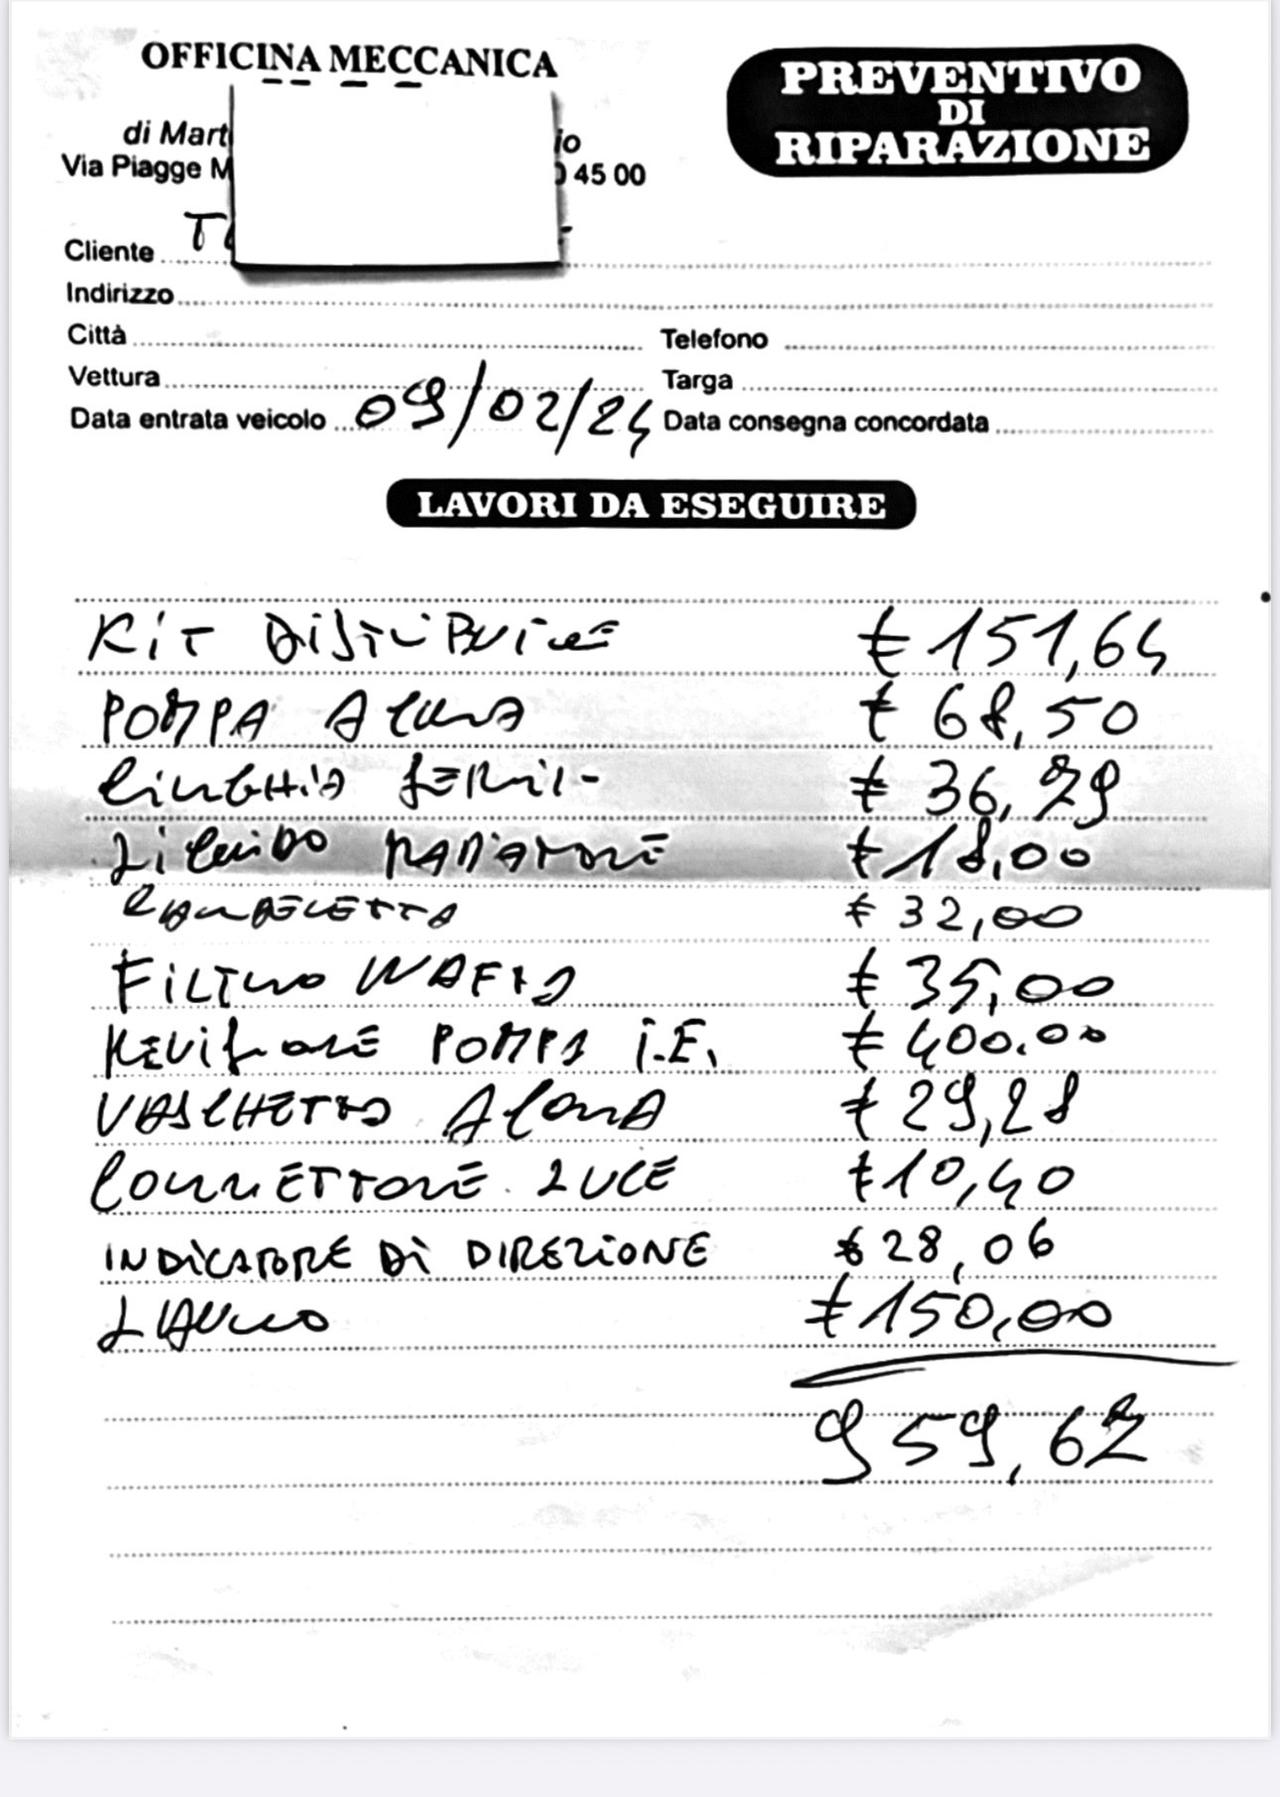 OFFICINA MECCANICA
PREVENTIVO
DI
RIPARAZIONE
di Mart io
Via Piagge M 45 00
Cliente
Indirizzo
Città Telefono
Vettura Targa
Data entrata veicolo 09/02/24 Data consegna concordata
LAVORI DA ESEGUIRE
KIT DISTRIBUZIONE € 151,64
POMPA ACQUA € 68,50
CINGHIA SERVIZ- € 36,79
LIQUIDO RADIATORE € 18,00
€ 32,00
FILTRO NAFTA € 35,00
REVISIONE POMPA I.E. € 400.00
VASCHETTA ACQUA € 29,28
CONNETTORE LUCE € 10,40
INDICATORE DI DIREZIONE € 28,06
LAVORO € 150,00
959,67